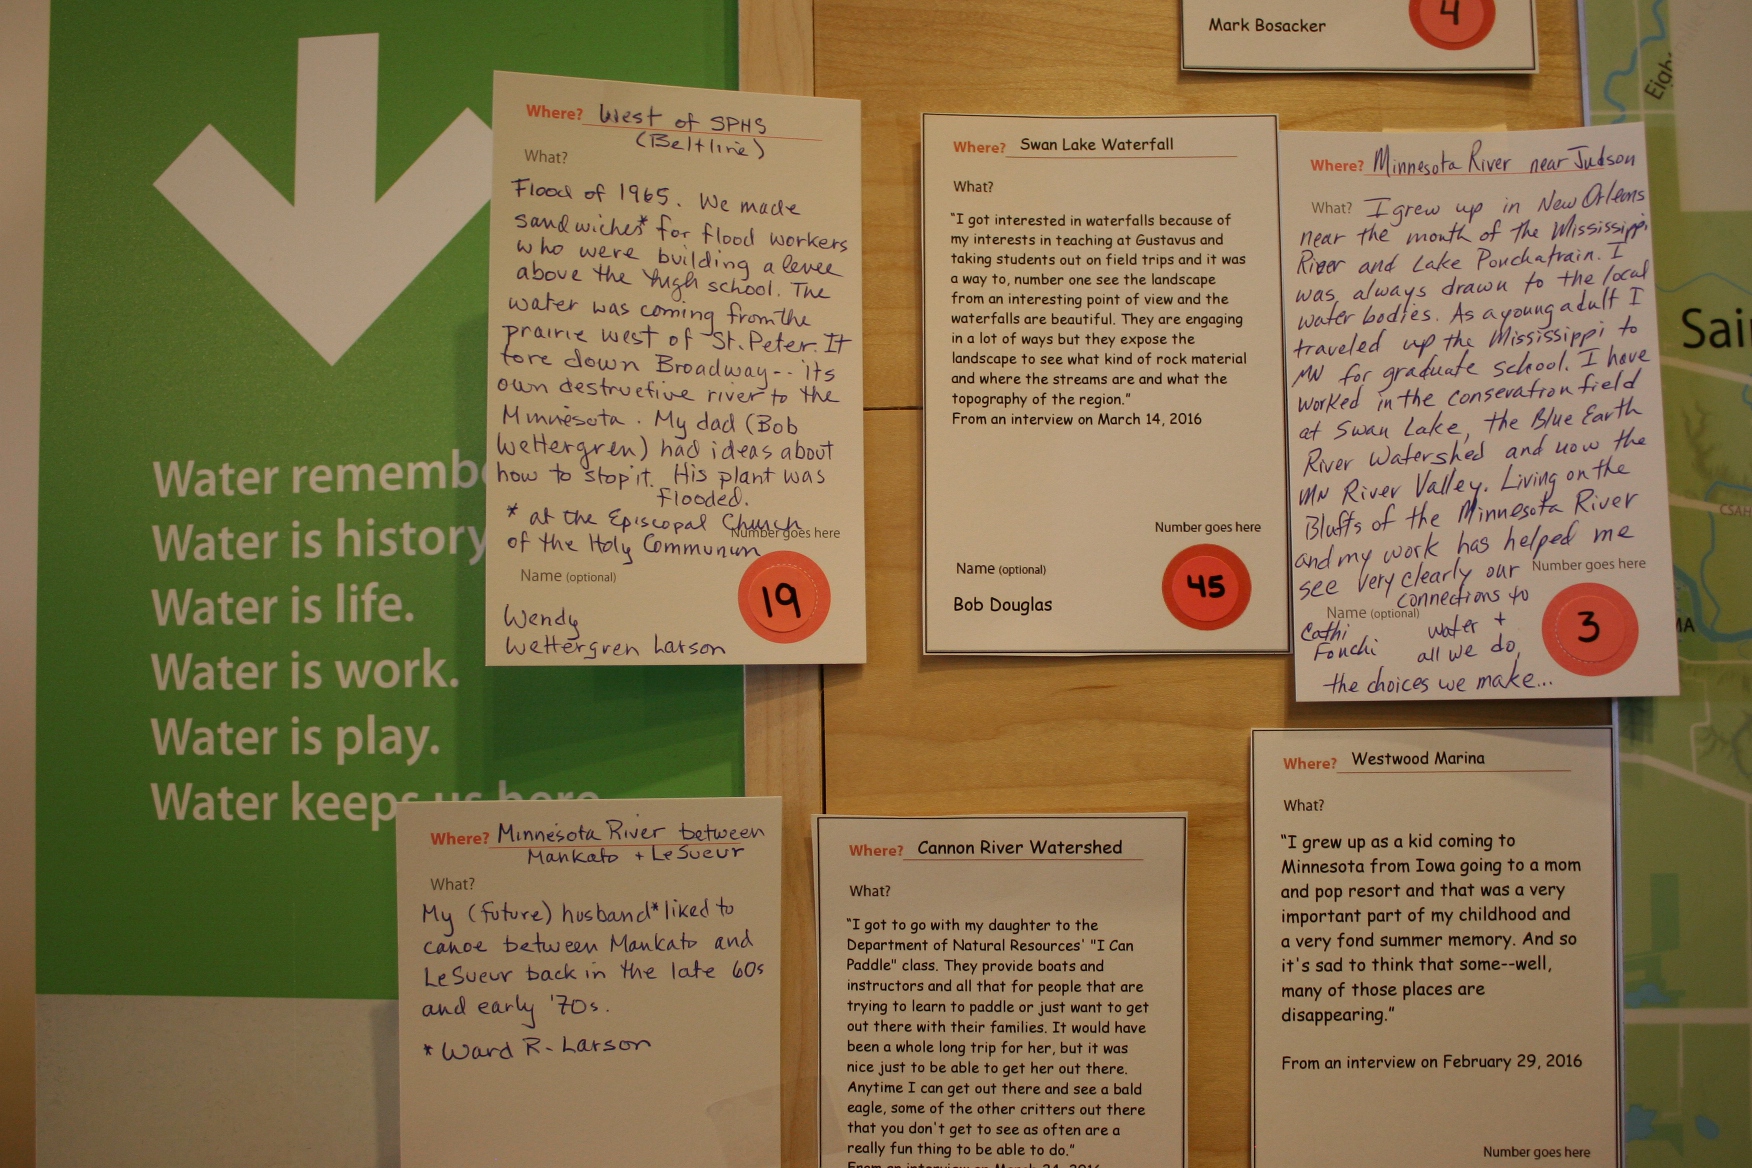 Mark Bosacker
4
Eigh
Where? West of SPHS
(Beltline)
What?
Flood of 1965. We made
sandwiches* for flood workers
who were building a levee
above the high school. The
water was coming from the
prairie west of St. Peter. It
tore down Broadway-- its
own destructive river to the
Minnesota. My dad (Bob
Wettergren) had ideas about
how to stop it. His plant was
flooded.
* at the Episcopal Church
of the Holy Communion
Number goes here
Name (optional)
19
Wendy
Wettergren Larson
Where? Swan Lake Waterfall
What?
"I got interested in waterfalls because of
my interests in teaching at Gustavus and
taking students out on field trips and it was
a way to, number one see the landscape
from an interesting point of view and the
waterfalls are beautiful. They are engaging
in a lot of ways but they expose the
landscape to see what kind of rock material
and where the streams are and what the
topography of the region."
From an interview on March 14, 2016
Number goes here
Name (optional)
45
Bob Douglas
Where? Minnesota River near Judson
What? I grew up in New Orleans
near the mouth of the Mississippi
River and Lake Ponchatrain. I
was always drawn to the local
water bodies. As a young adult I
traveled up the Mississippi to
MN for graduate school. I have
worked in the conservation field
at Swan Lake, the Blue Earth
River Watershed and now the
MN River Valley. Living on the
Bluffs of the Minnesota River
and my work has helped me
see very clearly our
connections to
water +
all we do,
the choices we make...
Number goes here
Name (optional)
Cathi
Fouchi
3
Sai
CSAH
MA
Water rememb
Water is history
Water is life.
Water is work.
Water is play.
Water keeps us here
Where? Minnesota River between
Mankato + LeSueur
What?
My (future) husband* liked to
canoe between Mankato and
LeSueur back in the late 60s
and early '70s.
* Ward R. Larson
Where? Cannon River Watershed
What?
"I got to go with my daughter to the
Department of Natural Resources' "I Can
Paddle" class. They provide boats and
instructors and all that for people that are
trying to learn to paddle or just want to get
out there with their families. It would have
been a whole long trip for her, but it was
nice just to be able to get her out there.
Anytime I can get out there and see a bald
eagle, some of the other critters out there
that you don't get to see as often are a
really fun thing to be able to do."
From an interview on March 24, 2016
Where? Westwood Marina
What?
"I grew up as a kid coming to
Minnesota from Iowa going to a mom
and pop resort and that was a very
important part of my childhood and
a very fond summer memory. And so
it's sad to think that some--well,
many of those places are
disappearing."
From an interview on February 29, 2016
Number goes here